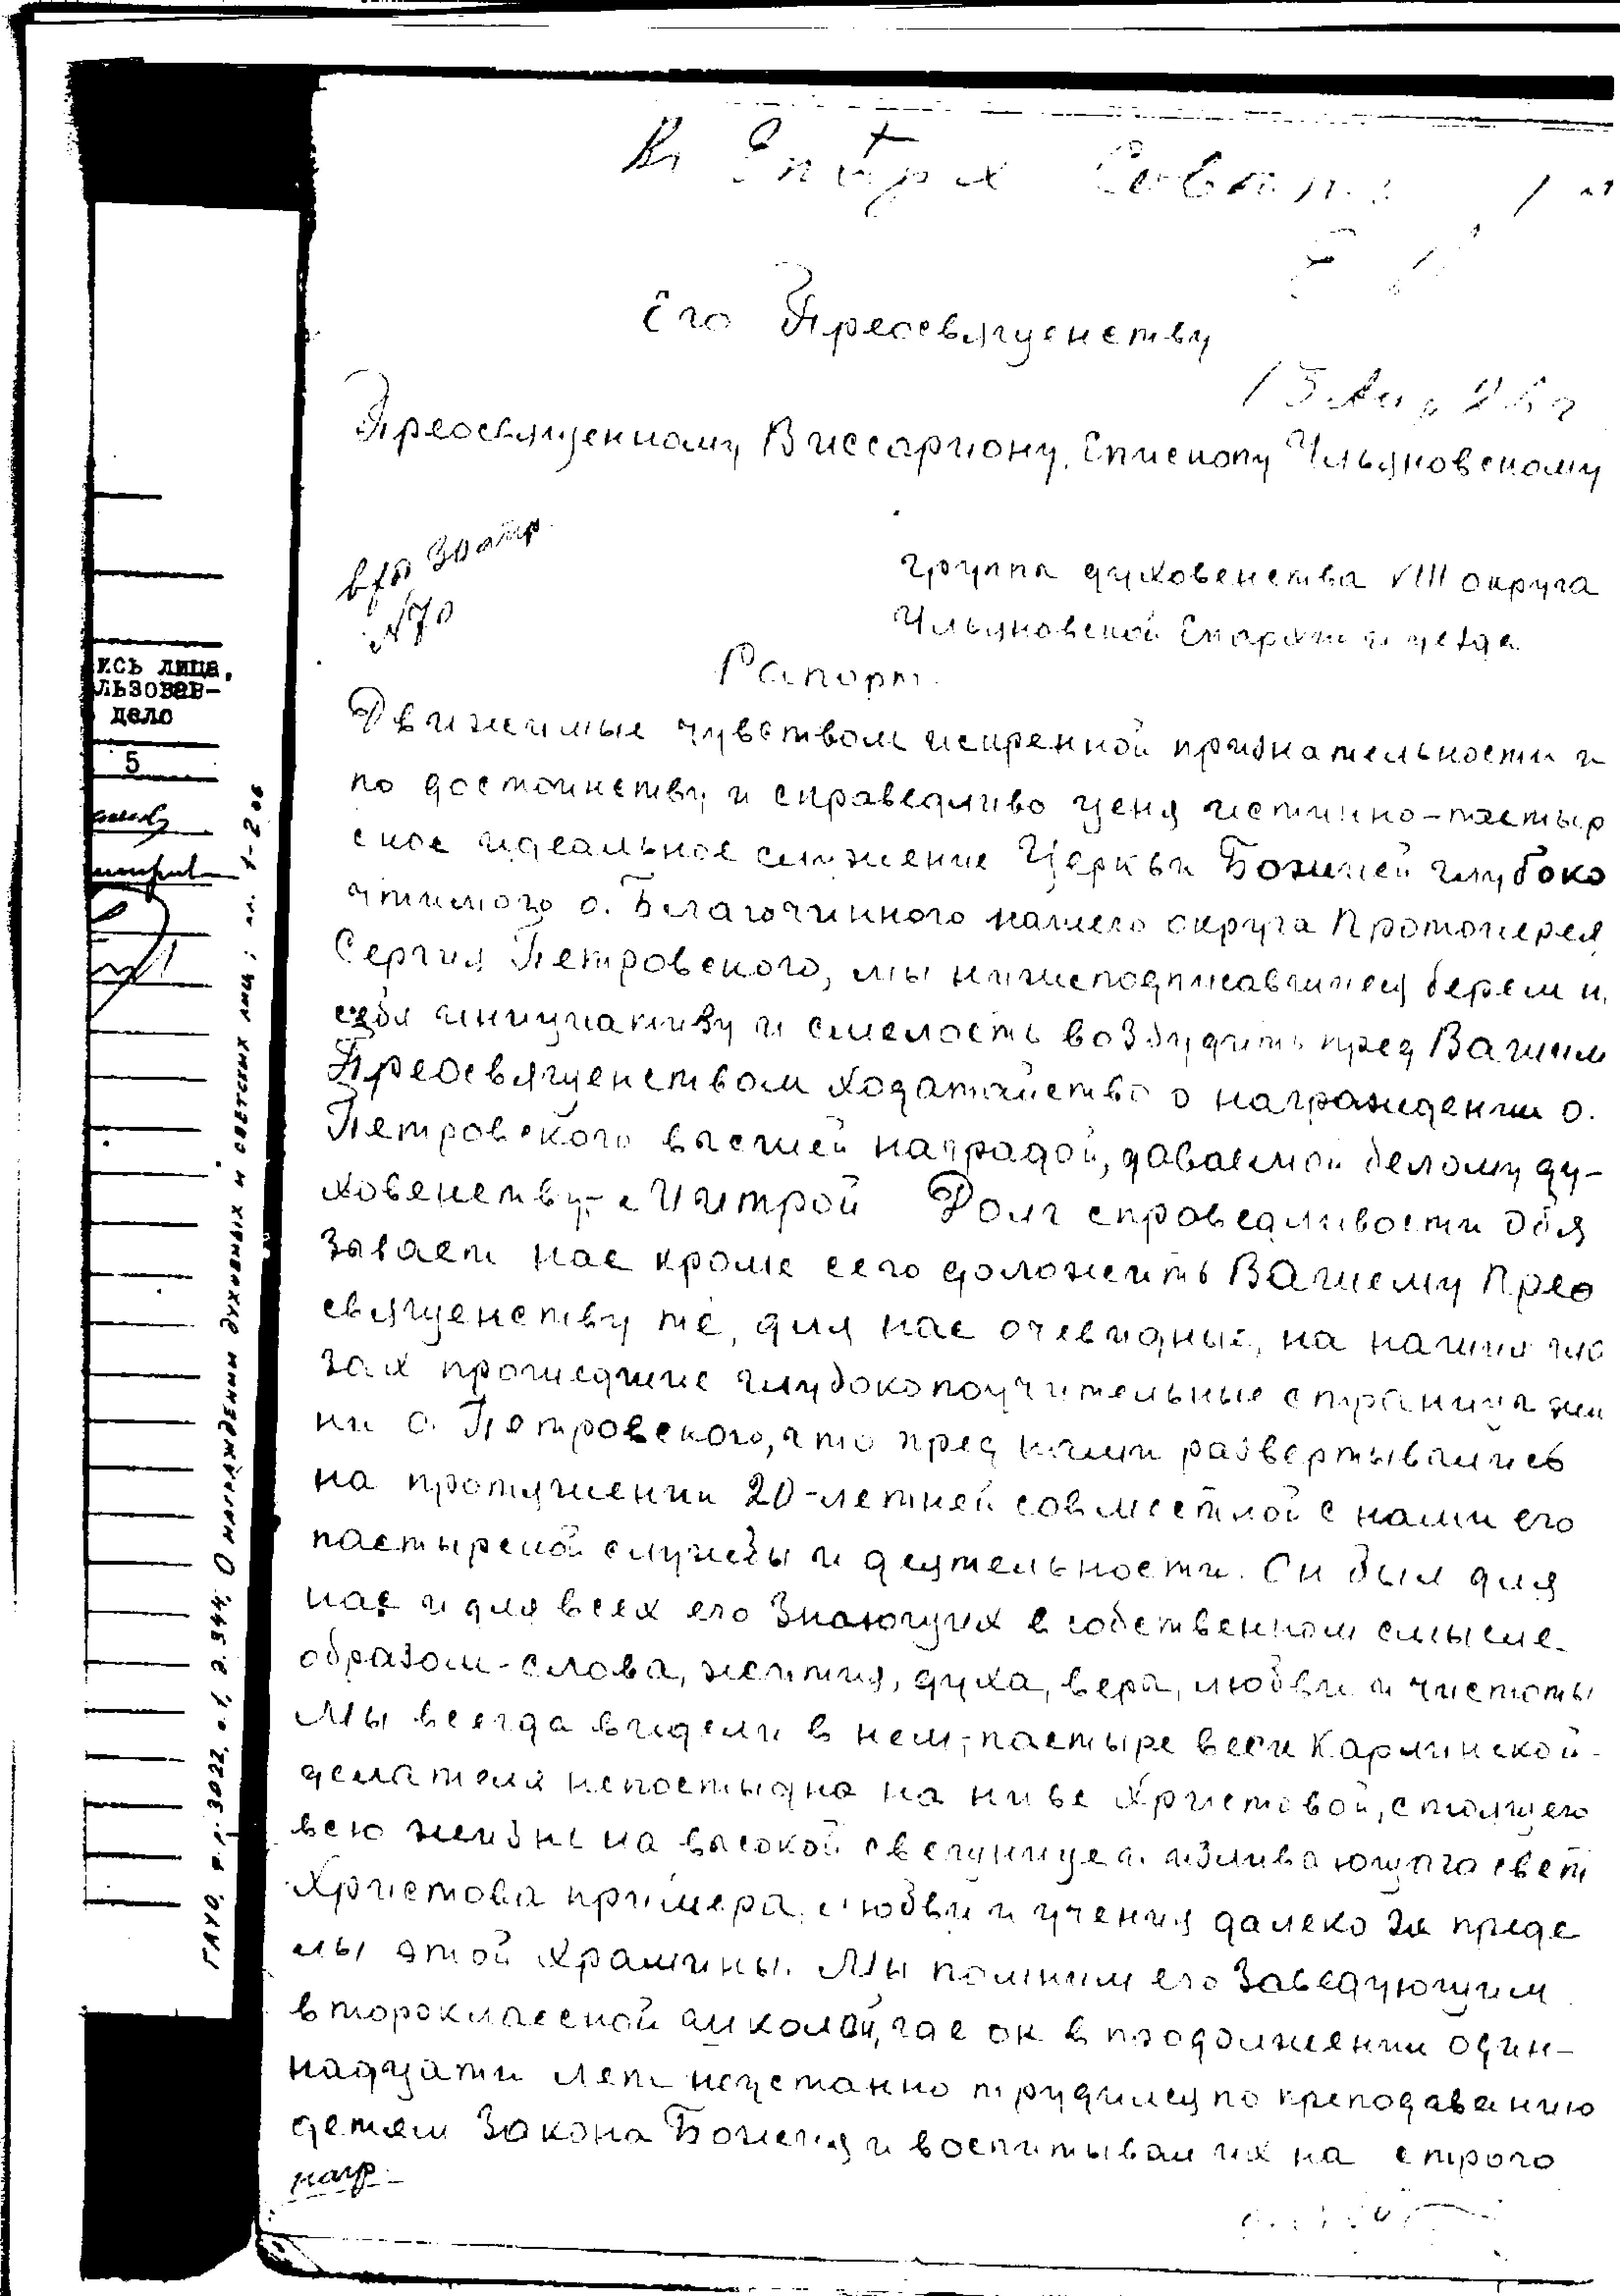 В Епарх Совет
Его Преосвященству
Преосвященному Виссариону, Епископу Ульяновскому
№70
группа духовенства VIII округа
Ульяновской Епархии и уезда
Рапорт.
Движимые чувством искренной признательности и
по достоинству и справедливо ценя истинно-пастыр
ское идеальное служение Церкви Божией глубоко
чтимого о. Благочинного нашего округа Протоиерея
Сергия Петровского, мы нижеподписавшиеся берем н
себя инициативу и смелость возбудить пред Вашим
Преосвященством ходатайство о награждении о.
Петровского высшей наградой, даваемой белому ду-
ховенству,- Митрой Долг справедливости обя
зывает нас кроме сего доложить Вашему Прео
священству те, для нас очевидные, на наших гла
зах прошедшие глубокопоучительные страницы жи
ни о. Петровского, что пред нами развертывались
на протяжении 20-летней совместной с нами его
пастырской службы и деятельности. Он был для
нас и для всех его знающих в собственном смысле-
образом-слова, жития, духа, веры, любви и чистоты
Мы всегда видели в нем,-пастыре веси Карлинской-
делателя непостыдна на ниве Христовой, стоящего
всю жизнь на высокой свещнице и изливающого свет
Христова примера, любви и учения далеко за преде
лы этой храмины. Мы помним его заведующим
второклассной школой, где он в продолжении один-
надцати лет неустанно трудился по преподаванию
детям Закона Божия и воспитывал их на строго
нагр.
ись лица,
льзовав-
дело
5
ГАУО, ф.р-3022, о.1, д.344, О награждении духовных и светских лиц; лл. 1-2 об